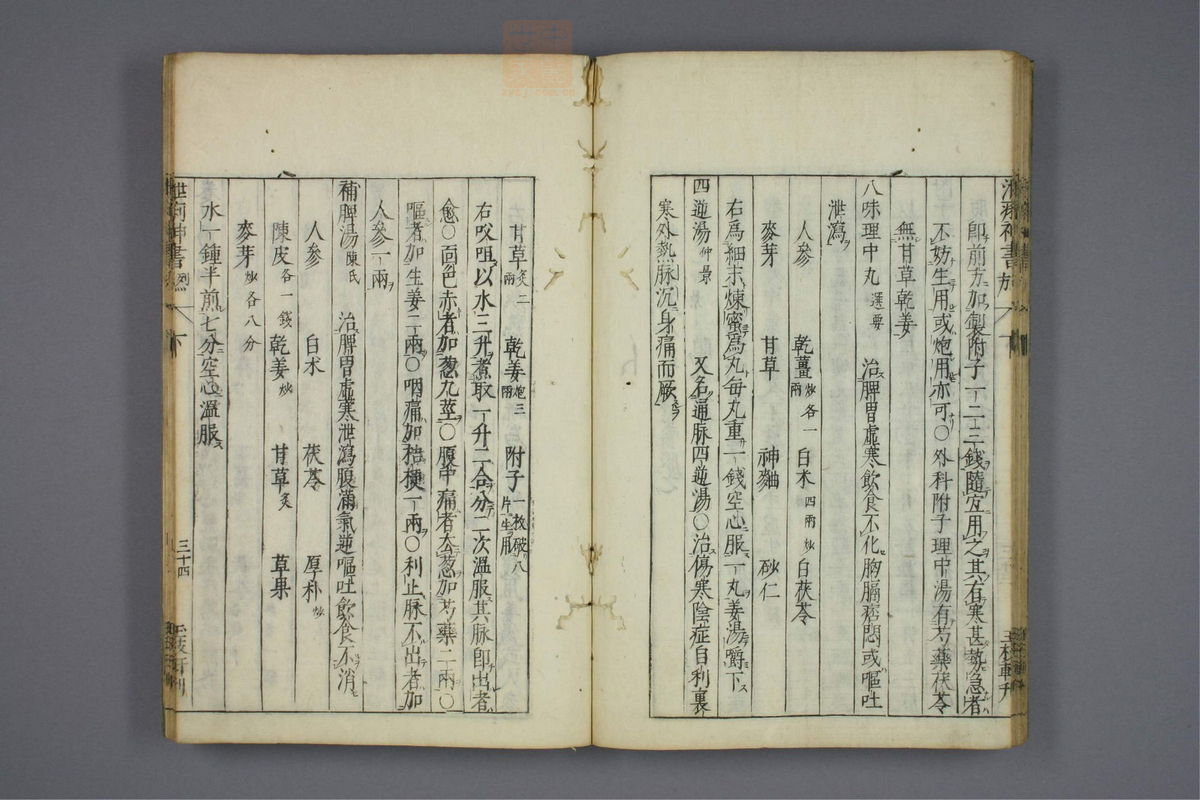 即前方加製附子一二三錢隨宜用之其有寒甚勢急者
不妨生用或炮用亦可〇外科附子理中湯有芍藥茯苓
無甘草乾姜
八味理中丸 選要 治脾胃虛寒飲食不化胸膈痞悶或嘔吐
泄瀉
人參 乾薑 炒各一兩 白朮 四兩炒 白茯苓
麥芽 甘草 神麯 砂仁
右爲細末煉蜜爲丸每丸重一錢空心服一丸姜湯嚼下
四逆湯 仲景 又名通脉四逆湯〇治傷寒陰症自利裏
寒外熱脉沉身痛而厥
甘草 炙二兩 乾姜 炮三兩 附子 一枚破八片生用
右㕮咀以水三升煮取一升二合分二次溫服其脉即出者
愈〇面色赤者加葱九莖〇腹中痛者去葱加芍藥二兩〇
嘔者加生姜二兩〇咽痛加桔梗一兩〇利止脉不出者加
人參一兩
補脾湯 陳氏 治脾胃虛寒泄瀉腹滿氣逆嘔吐飲食不消
人參 白朮 茯苓 厚朴 炒
陳皮 各一錢 乾姜 炒 甘草 炙 草果
麥芽 炒各八分
水一鍾半煎七分空心溫服
三十四